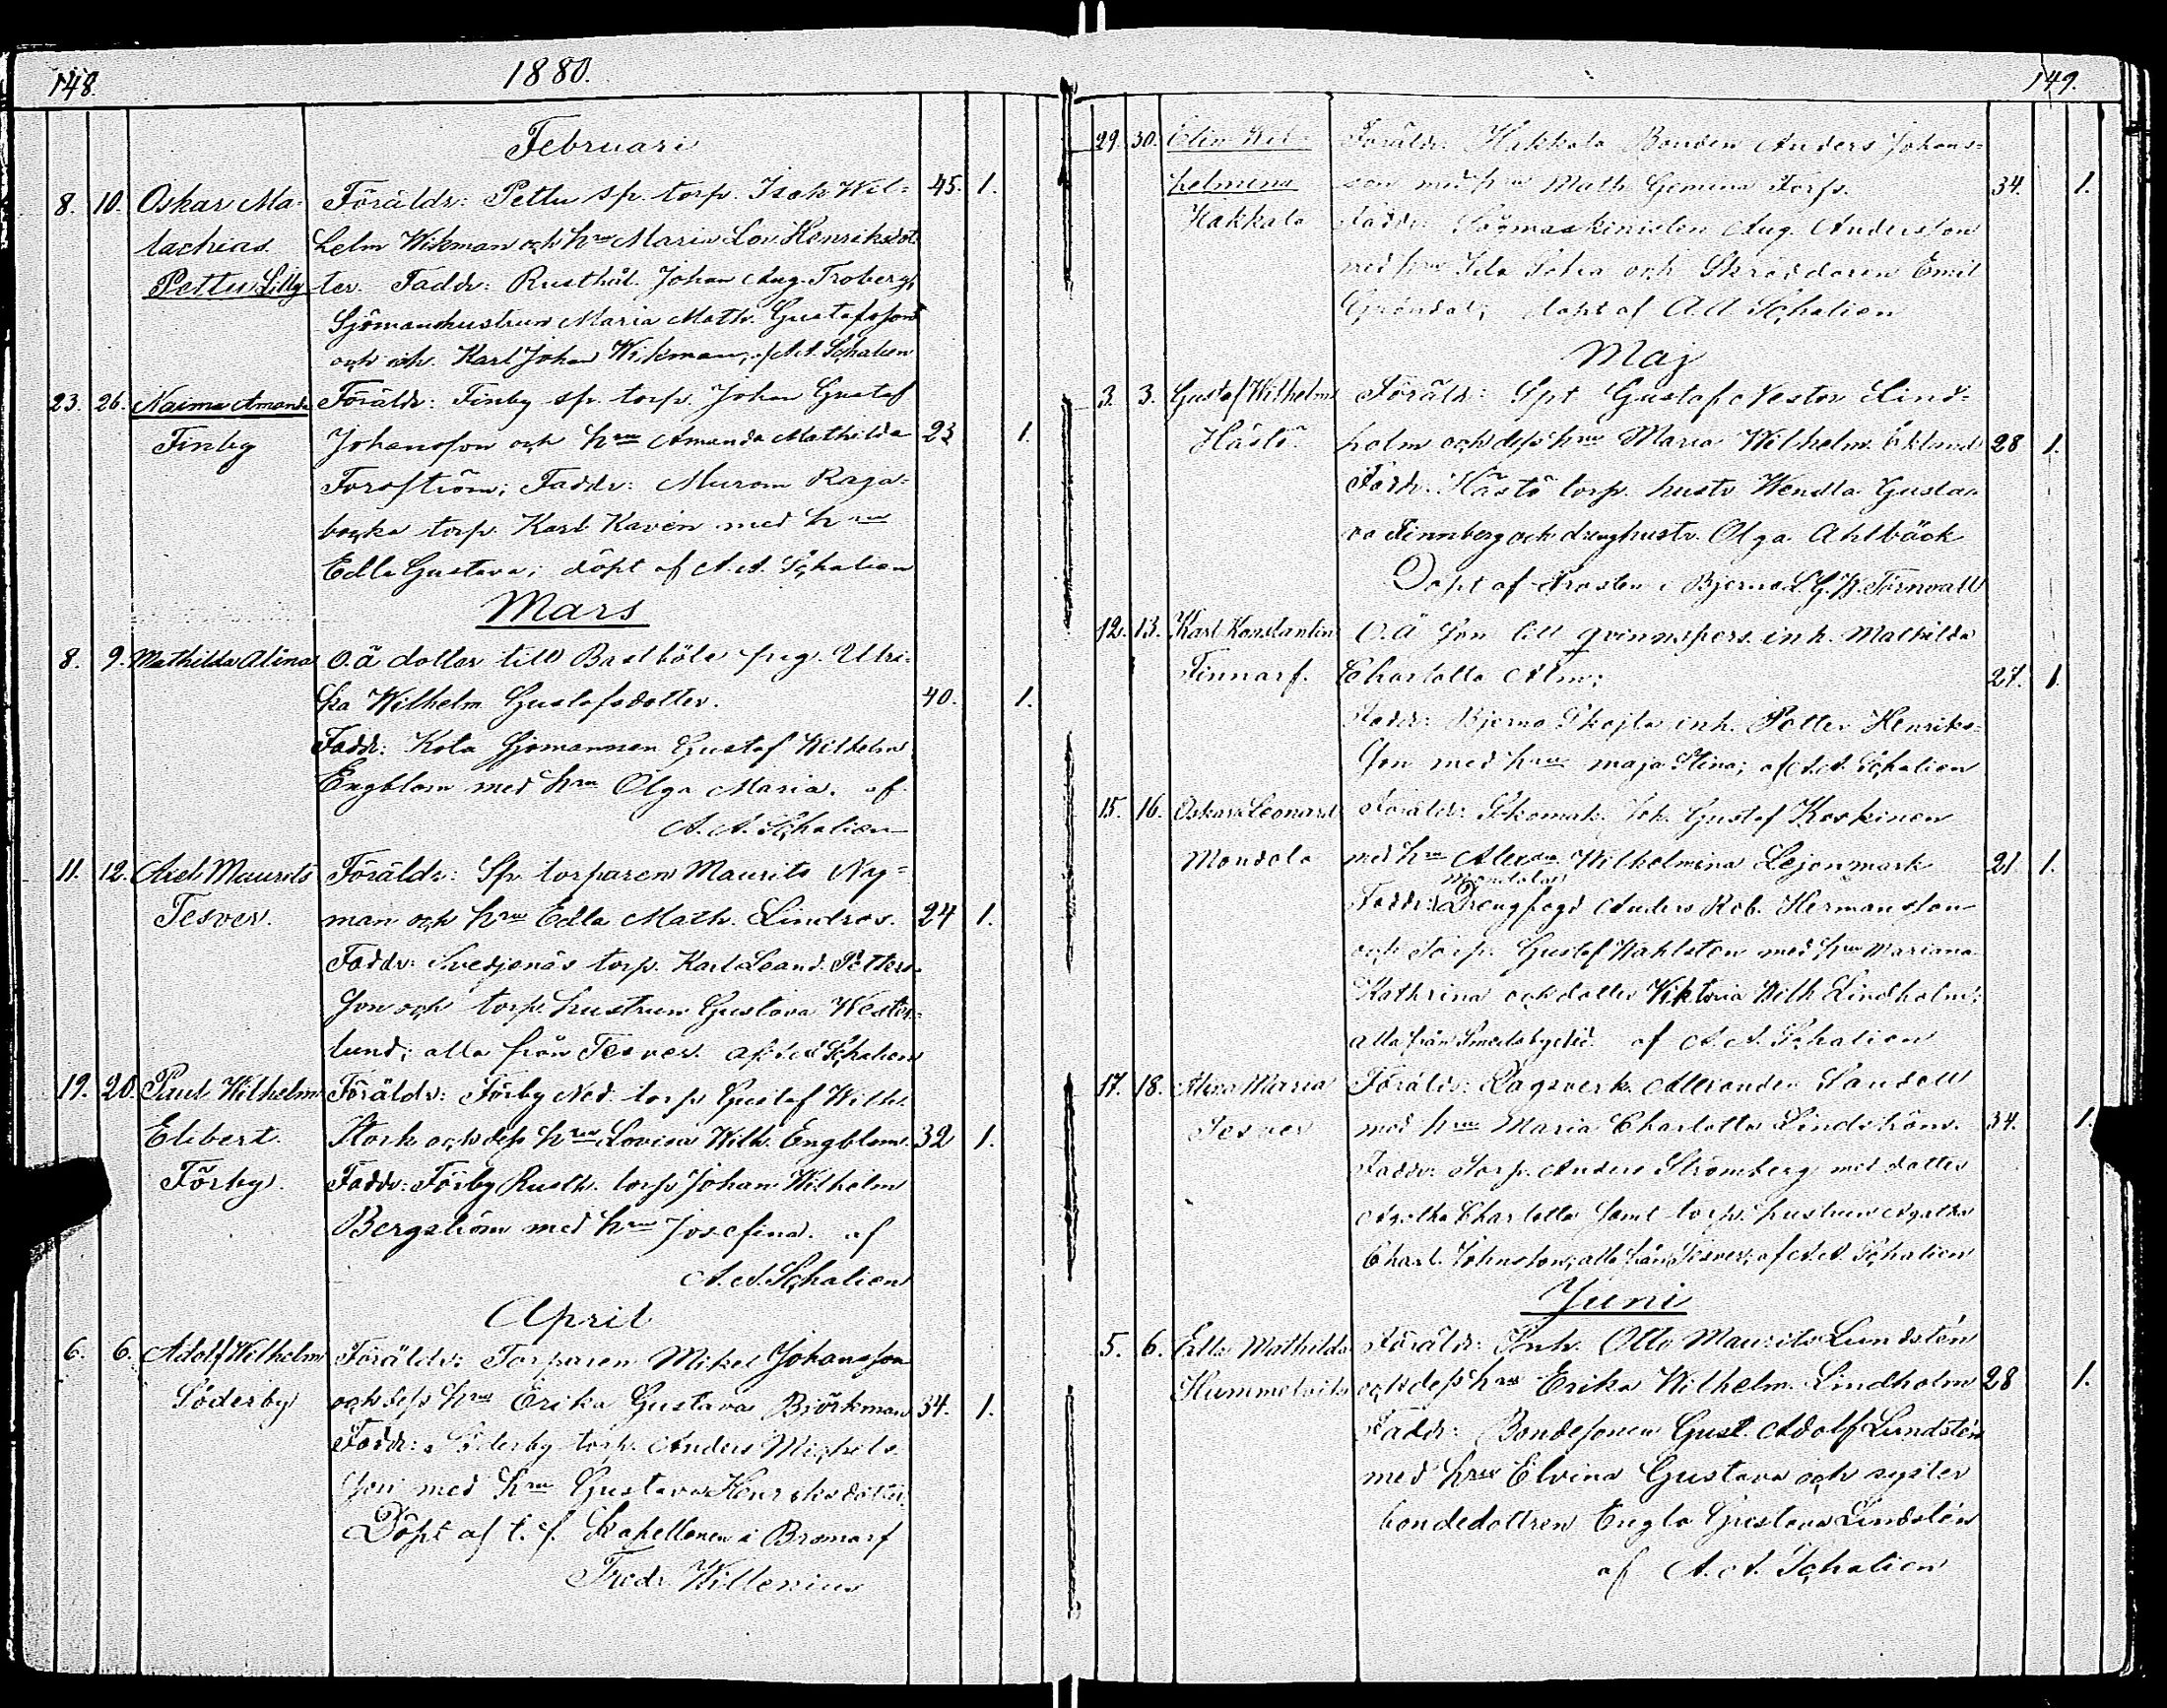 148.
1880.
Februari
8. 10. Oskar Ma- Föräldr: Pettu sp. torp. Isak Wil- 45. 1.
lachias helm Wikman och hru Maria Lov. Henriksdot
Pettu Lillg ter. Faddr: Rusthål. Johan Aug. Froberg,
Sjömanhustrun Maria Math. Gustafsson
och Karl Johan Wikman, af A.A. Schalien
23. 26. Naima Amanda Föräldr: Finby sp. torp. Johan Gustaf
Finby Johansson och hru Amanda Mathilda 23 1.
Forsström; Faddr: Murom Raja-
backa torp. Karl Kavén med hru
Edla Gustava; döpt af A.A. Schalien
Mars
8. 9. Mathilda Alina O.ä dotter till Bastböle pig. Ulri-
ka Wilhelm Gustafsdotter. 40. 1.
Faddr: Kota Sjömannen Gustaf Wilhelm
Engblom med hru Olga Maria. af
A. A. Schalien
11. 12. Axel Maurits Föräldr: Sp. torparen Maurits Nay-
Tesver. man och hru Edla Math. Lindros. 24 1.
Faddr: Svedjenäs torp. Karl Leand. Petters-
son och torp. hustrun Gustava Wester-
lund; alla från Tesver. af A.A Schalien
19. 20. Paul Wilhelm Föräldr: Förby Ned. torp Gustaf Wilh.
Elibert. Stork och dess hru Lovisa Wilh. Engblom. 32 1.
Förby. Faddr: Förby Rusth. torp Johan Wilhelm
Bergström med hru Josefina. af
A. A. Schalien
April
6. 6. Adolf Wilhelm Föräldr: Torparen Mikel Johansson
Söderby och dess hru Erika Gustava Björkman 34. 1.
Faddr: Söderby torp. Anders Michels-
son med hru Gustava Henriksdotter.
Döpt af t. f. Kapellanen i Bromarf
Fredr. Willenius
149.
29. 30. Elin Wil- Föräldr: Hakkala Bonden Anders Johans-
helmina son med hru Math. Gemina Torp. 34. 1.
Hakkala Faddr: Aug. Andersson
med hru Ida Sofia och Skräddaren Emil
Gröndal; döpt af A.A Schalien
Maj
3. 3. Gustaf Wilhelm Föräldr: Spt Gustaf Nestor Lind-
Hästö holm och dess hru Maria Wilhelm. Eklund 28 1.
Faddr. Hästö torp. hustr Wendla Gusta-
va Finnberg och dräghustr. Olga Ahlbäck
Döpt af Prosten i Bjerno L.G.W. Törnvall
12. 13. Karl Konstantin O.ä son till qvinnspers. inh. Mathilda
Finnarf. Charlotta Alm; 27. 1.
Faddr: Bjerno inh. Petter Henriks-
son med hru Maja Stina; af A.A. Schalien
15. 16. Oskar Leonard Föräldr: Skomak. Joh. Gustaf Koskinen
Mondola med hru Alexan. Wilhelmina Lejonmark 21 1.
Faddr: Mondolas Drengfogd Anders Rob. Hermansson
och Torp. Gustaf Wahlsten med hru Mariana
Kathrina och dotter Viktoria Wilh Lindholm;
alla från Smedsbyeled. af A. A. Schalien
17. 18. Alina Maria Föräldr: Dagsverk. Alexander Sandell
Tesver med hru Maria Charlotta Lindström. 34. 1.
Faddr: Torp. Anders Strömberg med dotter
Agatha Charlotta samt torp. hustrun Agatha
Charl. Johnsson, alla från Tesver; af A.A. Schalien
Juni
5. 6. Edla Mathilda Föräldr: Inh. Otto Maurits Lundstén
och dess hru Erika Wilhelm. Lindholm 28 1.
Faddr: Bondesonen Gust. Adolf Lundstén
med hru Elvina Gustava och syster
bondedottren Engla Gustava Lundstén
af A. A. Schalien